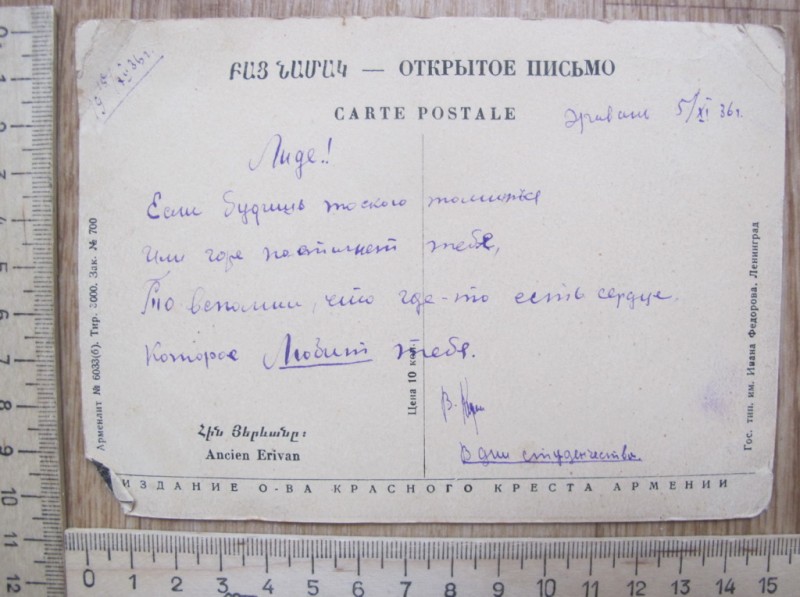 ԲԱՑ ՆԱՄԱԿ — ОТКРЫТОЕ ПИСЬМО
CARTE POSTALE
XI 36 г.
Эривань 5/XI 36 г.
Лиде!!
Если будишь тоского томиться
Или горе постигнет тебе,
То вспомни, что где-то есть сердце.
Которое Любит тебя.
В.
В дни студенчества.
Հին Յերևանը:
Ancien Erivan
Арменлит № 6033(б). Тир. 3000. Зак. № 700
Цена 10 коп.
Гос. тип. им. Ивана Федорова. Ленинград
ИЗДАНИЕ О-ВА КРАСНОГО КРЕСТА АРМЕНИИ
0 1 2 3 4 5 6 7 8 9 10 11 12
0 1 2 3 4 5 6 7 8 9 10 11 12 13 14 15